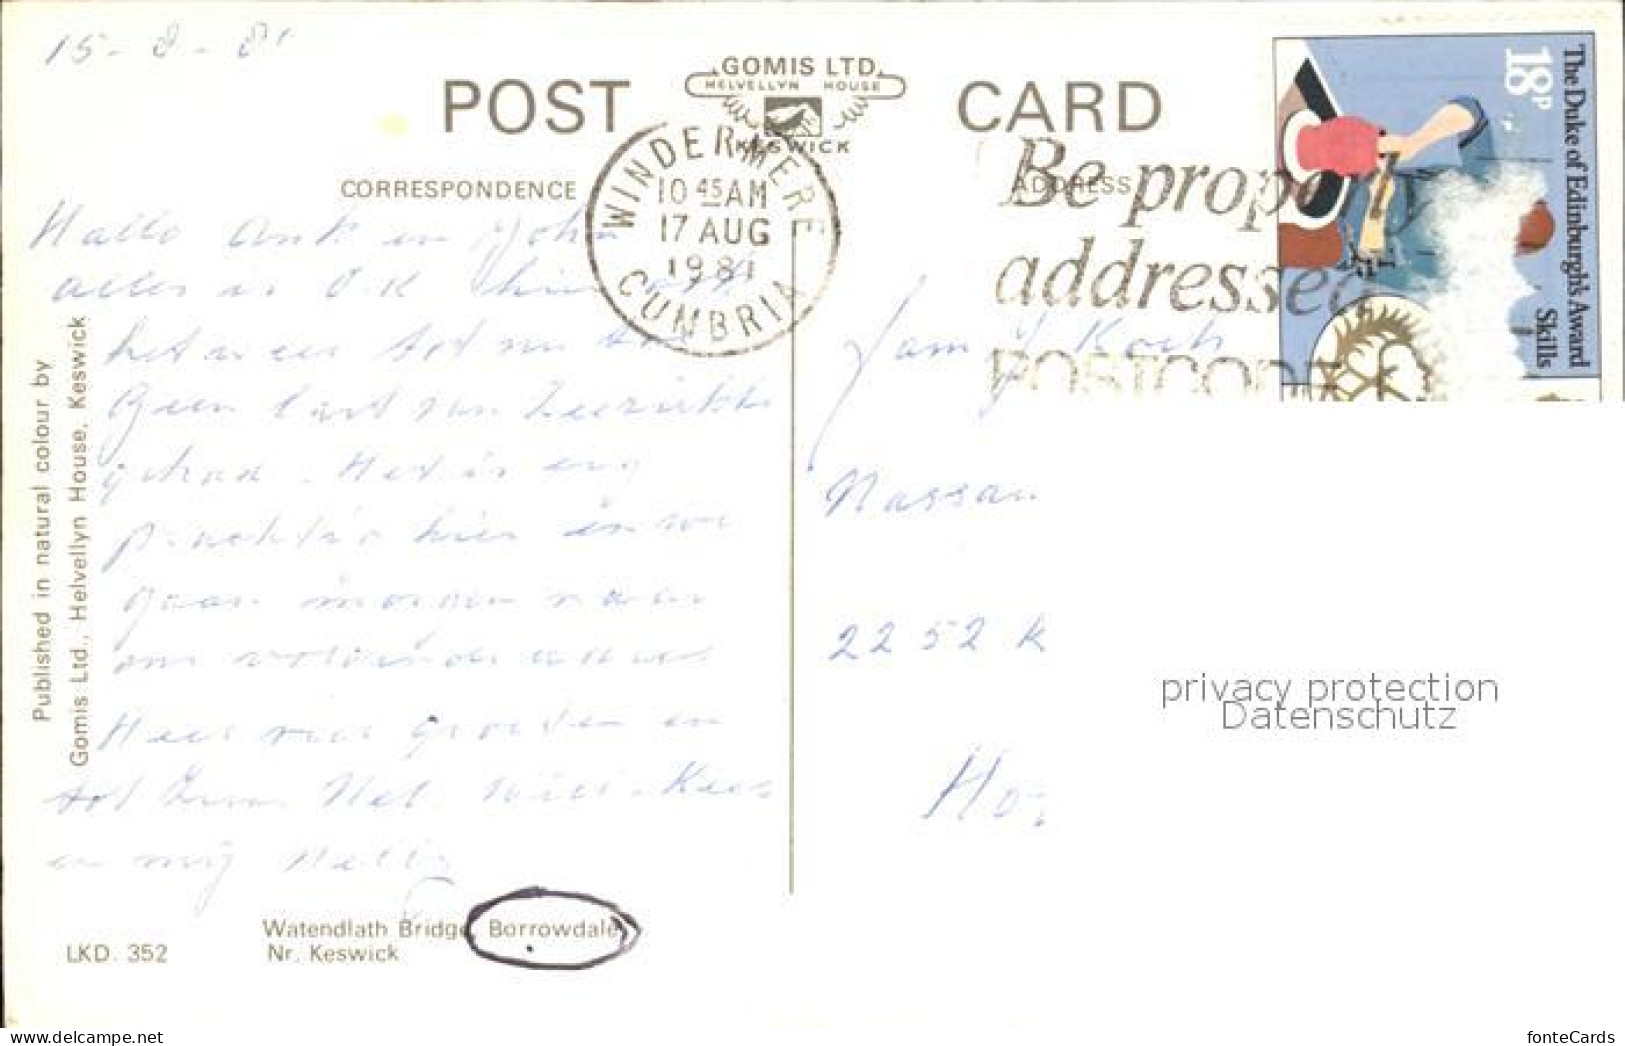 15-8-81
POST CARD
GOMIS LTD.
HELVELLYN HOUSE
KESWICK
CORRESPONDENCE
ADDRESS
WINDERMERE
10 45 AM
17 AUG
1981
CUMBRIA
Be properly
addressed
POSTCODE
18p
The Duke of Edinburgh's Award
Skills
Hallo Ank en John
alles is O.K hier
het weer tot nu toe
Geen last van zeeziekte
gehad. Het is erg
prachtig hier en we
gaan morgen naar
ons volgende adres
Heel veel groeten en
tot ziens Nel Wil Kees
en mij Nelly
Fam J Koch
Nassau
2252 K
Ho
privacy protection
Datenschutz
Published in natural colour by
Gomis Ltd., Helvellyn House, Keswick
Watendlath Bridge, Borrowdale,
Nr. Keswick
LKD. 352
www.delcampe.net
fonteCards